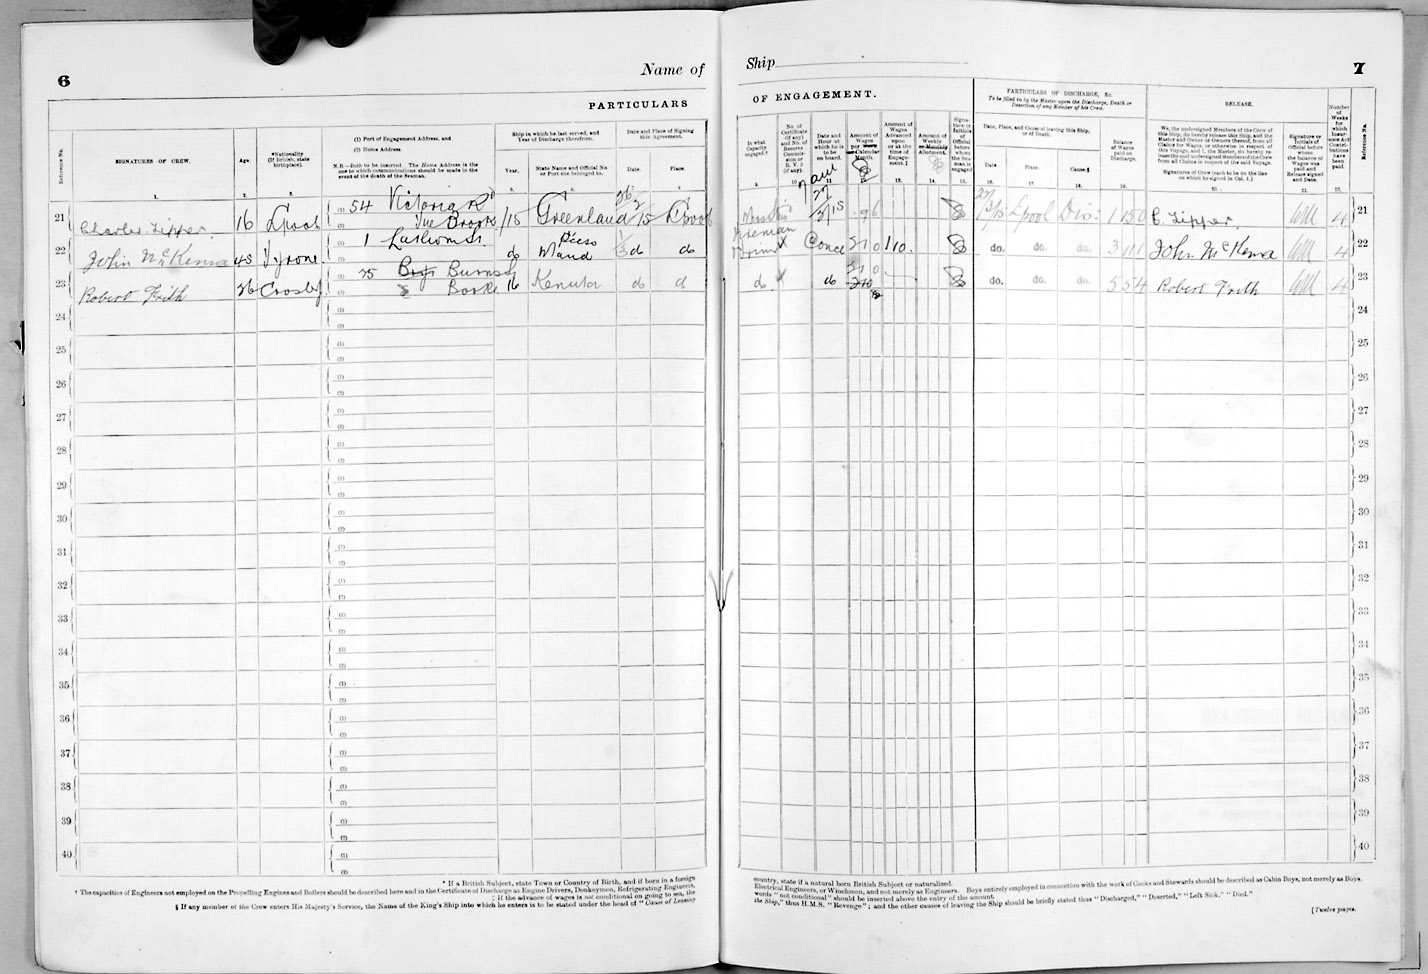 6
Name of
PARTICULARS
Reference No.
SIGNATURES OF CREW.
Age.
*Nationality
(If British, state
birthplace).
(1) Port of Engagement Address, and
(2) Home Address.
N.B.—Both to be inserted. The Home Address is the
one to which communications should be made in the
event of the death of the Seaman.
Ship in which he last served, and
Year of Discharge therefrom.
Year.
State Name and Official No.
or Port she belonged to.
Date and Place of Signing
this Agreement.
Date.
Place.
1.
2.
3.
5.
6.
21 Charles Tipper. 16 L'pool (1) 54 Victoria Rd 15 Greenland 26/2/15 L'pool
22 John McKenna 45 Tyrone 1 do do do
23 Robert Frith 26 Crosby 25 16 Kenuta do d
24
25
26
27
28
29
30
31
32
33
34
35
36
37
38
39
40
* If a British Subject, state Town or Country of Birth, and if born in a foreign
† The capacities of Engineers not employed on the Propelling Engines and Boilers should be described here and in the Certificate of Discharge as Engine Drivers, Donkeymen, Refrigerating Engineers,
‡ If the advance of wages is not conditional on going to sea, the
§ If any member of the Crew enters His Majesty's Service, the Name of the King's Ship into which he enters is to be stated under the head of "Cause of Leaving
Ship
7
OF ENGAGEMENT.
In what
Capacity
engaged.†
No. of
Certificate
(if any)
and No. of
Reserve
Commis-
sion or
R. V. 2
(if any).
Date and
Hour at
which he is
to be
on board.
Amount of
Wages
per Week
or Calendar
Month.
Amount of
Wages
Advanced
upon
or at the
time of
Engage-
ment.‡
Amount of
Weekly
or Monthly
Allotment.
Signa-
ture or
Initials
of
Official
before
whom
the Sea-
man is
engaged
PARTICULARS OF DISCHARGE, &c.
To be filled in by the Master upon the Discharge, Death or
Desertion of any Member of his Crew.
Date, Place, and Cause of leaving this Ship,
or of Death.
Date.
Place.
Cause.§
Balance
of Wages
paid on
Discharge.
RELEASE.
We, the undersigned Members of the Crew of
this Ship, do hereby release this Ship, and the
Master and Owner or Owners thereof, from all
Claims for Wages, or otherwise in respect of
this Voyage, and I, the Master, do hereby re-
lease the said undersigned Members of the Crew
from all Claims in respect of the said Voyage.
Signatures of Crew (each to be on the line
on which he signed in Col. 1.)
Signature or
Initials of
Official before
whom
the balance of
Wages was
paid and
Release signed
and Date.
Number
of
Weeks
for
which
Insur-
ance Act
Contri-
butions
have
been
paid.
Reference No.
9.
10.
11.
12.
13.
14.
15.
16.
17.
18.
19.
20.
21.
22.
27/3/15 L'pool Dis: 1 15 0 C. Tipper. 4 21
Fireman 5 10 0 1 10 do. do. do. 3 1 1 John McKenna 4 22
do do 5 10 0 do. do. do. 5 5 4 Robert Frith 4 23
24
25
26
27
28
29
30
31
32
33
34
35
36
37
38
39
40
country, state if a natural born British Subject or naturalized.
Electrical Engineers, or Winchmen, and not merely as Engineers. Boys entirely employed in connection with the work of Cooks and Stewards should be described as Cabin Boys, not merely as Boys.
words "not conditional" should be inserted above the entry of the amount.
the Ship," thus H.M.S. "Revenge"; and the other causes of leaving the Ship should be briefly stated thus "Discharged," "Deserted," "Left Sick," "Died."
[Twelve pages.